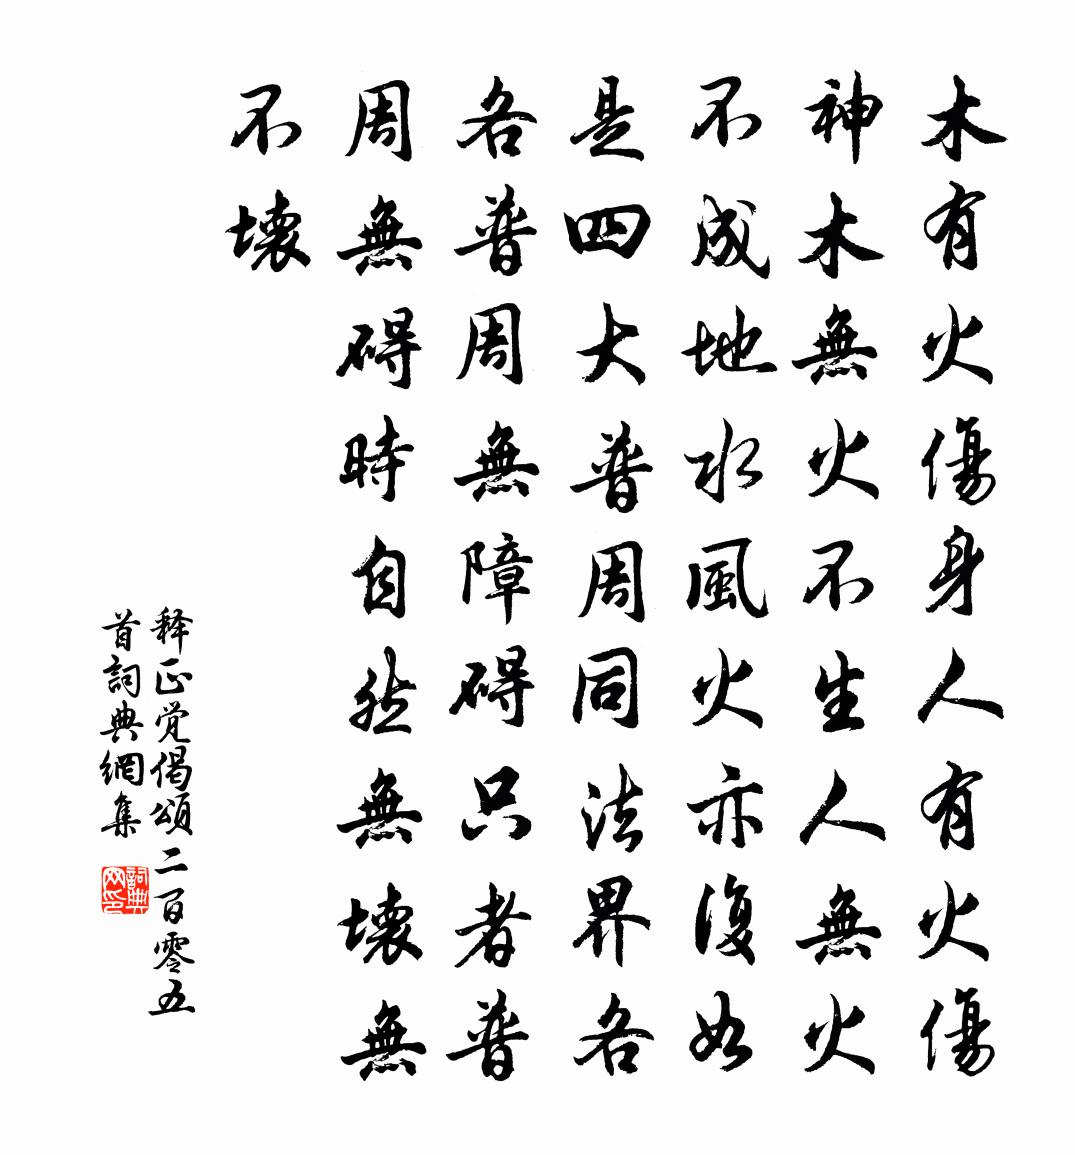 木有火傷身人有火傷
神木無火不生人無火
不成地水風火亦復如
是四大普周同法界各
各普周無障碍只者普
周無碍時自然無壞無
不壞
释正觉偈頌二百零五
首詞典網集
詞典网印